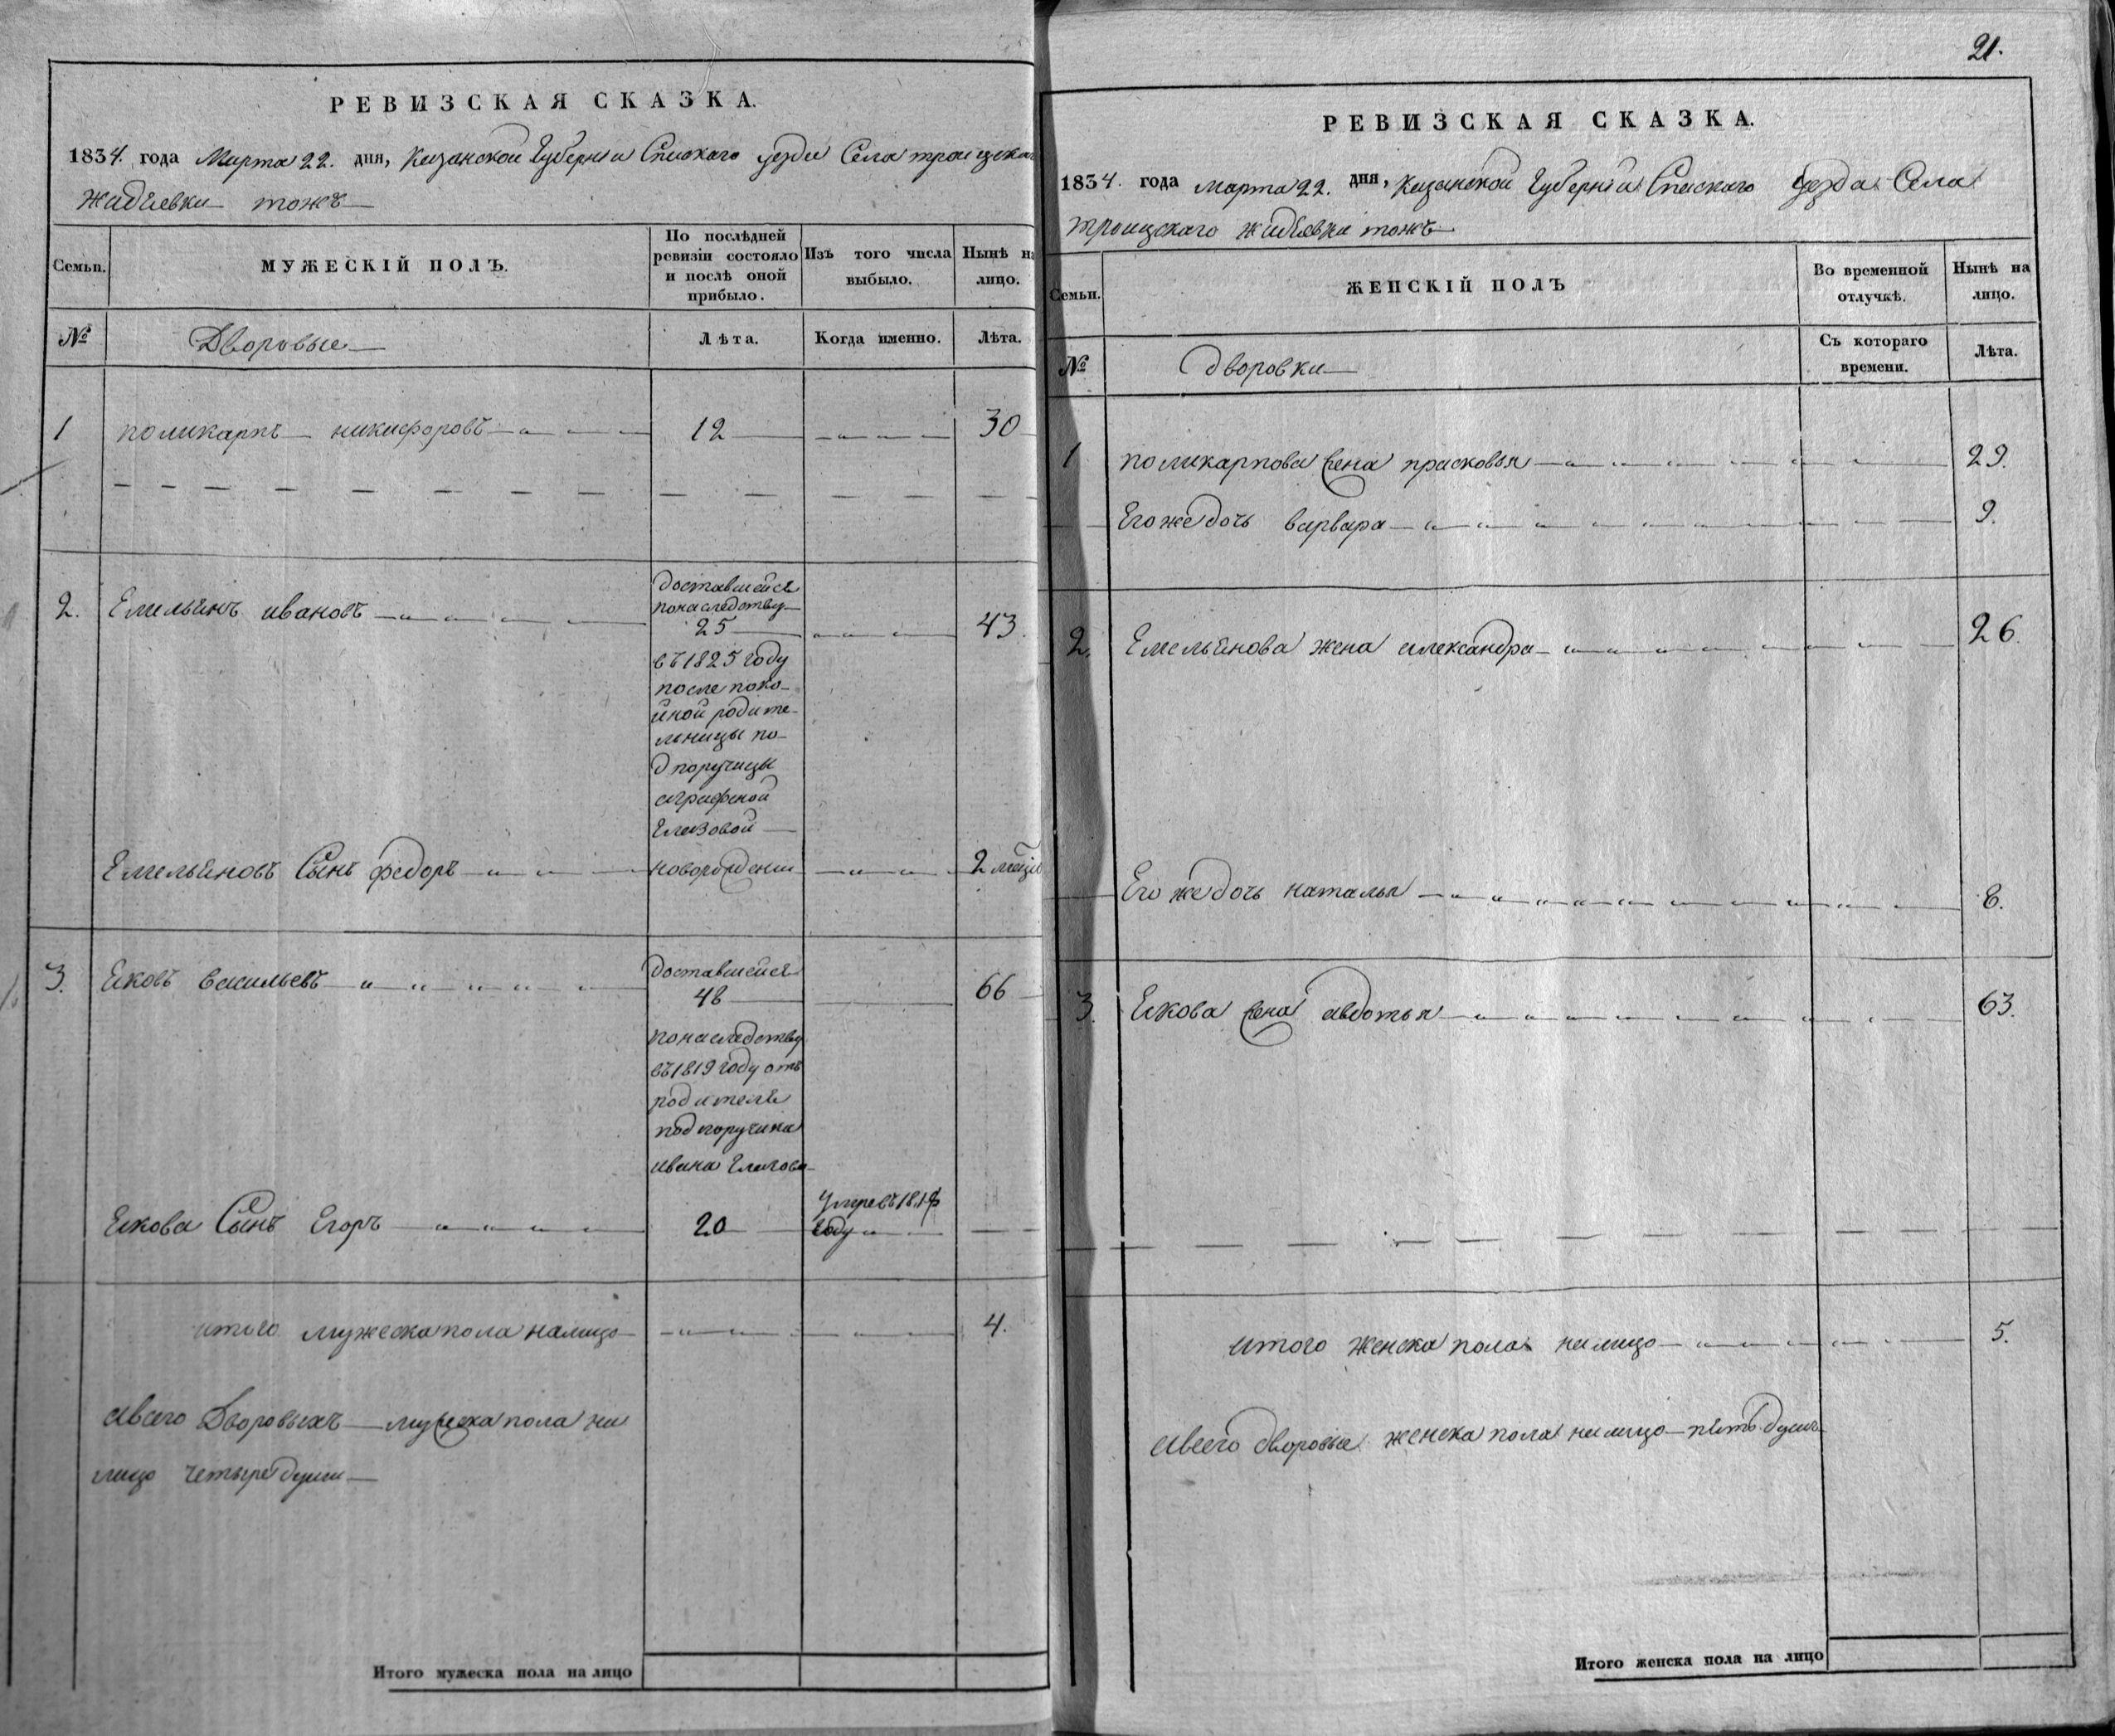 РЕВИЗСКАЯ СКАЗКА.
1834. года Марта 22. дня, Казанской Губернiи Спаскаго уезда Села троицкаго
жидяевки тожъ
Семьи.
МУЖЕСКIЙ ПОЛЪ.
По послѣдней
ревизiи состояло
и послѣ оной
прибыло.
Изъ того числа
выбыло.
Нынѣ на
лицо.
№
Дворовые
Лѣта.
Когда именно.
Лѣта.
1 поликарпъ никифоровъ 12 30
2. Емельянъ ивановъ 43.
доставшейся
понаследству
25
въ 1825 году
после поко-
йной родите-
льницы по-
дпоручицы
аграфеной
Емельяновъ Сынъ федоръ новорожденн 2 месяцо
3. Яковъ васильевъ 66
доставшейся
48
понаследству
въ 1819 году отъ
родителя
подпоручика
ивана
Якова Сынъ Егоръ 20
умре въ 181
году
итого мужеска пола налицо 4.
Авсего Дворовыхъ мужеска пола на
лицо четыре души
Итого мужеска пола на лицо
21.
РЕВИЗСКАЯ СКАЗКА.
1834. года марта 22. дня, Казанской Губернiи Спаскаго уезда Села
троицкаго жидяевки тожъ
Семьи.
ЖЕНСКIЙ ПОЛЪ
Во временной
отлучкѣ.
Нынѣ на
лицо.
№
дворовки
Съ котораго
времени.
Лѣта.
1 поликарпова жена прасковья 29.
Егоже дочь варвара 9.
2. Емельянова жена александра 26.
Его же дочь наталья 8.
3. Якова жена авдотья 63.
итого женска пола налицо 5.
Авсего дворовые женска пола налицо пять душъ
Итого женска пола на лицо